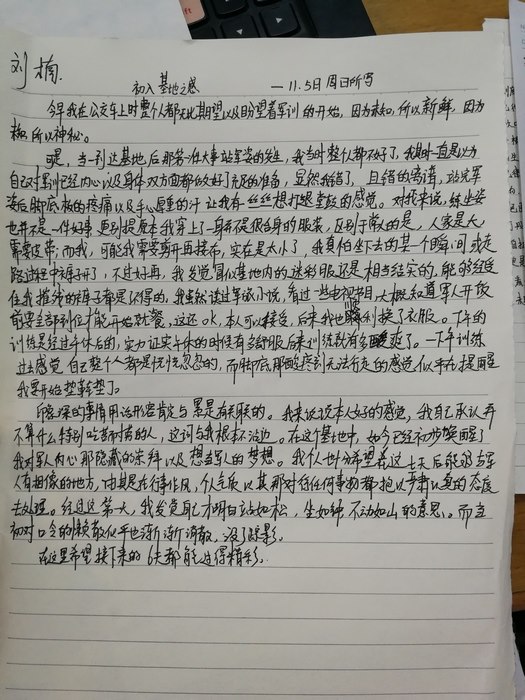 刘楠
初入基地之感 —11.5日周日所写
今早我在公交车上时整个人都无比期望以及盼望着军训的开始，因为未知，所以新鲜，因为
未知所以神秘。
可是，当一到达基地后那第一件大事站军姿的发生，我当时整个人都不好了，我那时一直是以为
自己对军训已经内心以及身体双方面都做好了充足的准备，显然我错了，且错的离谱，站完军
姿后脚底板的疼痛以及手心厚重的汗让我有一丝丝想打退堂鼓的感觉。对我来说，练坐姿
也并不是一件好事更别提原本我穿上了一身不是很合身的服装，区别于常人的是，人家是大
需要皮带；而我，可能我需要剪开再接布，实在是太小了，我真怕坐下去的某一个瞬间或走
路过程中裤子开了，不过好再，我发觉冒似基地内的迷彩服还是相当结实的，能够经受
住我摧残的裤子都是好样的，我虽然读过军旅小说，看过一些电视节目，大概知道军人开饭
前要全部到位才能开始就餐，这还ok，本人可以接受，后来我也顺利换了衣服。下午的
训练是经过午休后的，实力证实午休的时候有多舒服后来训练就有多酸爽了。一下午训练
过去感觉自己整个人都是恍恍忽忽的，而脚底那酸疼到无法行走的感觉似乎在提醒
我要开始垫鞋垫了。
印象深的事情用话形容肯定与累是有关联的。我来说说本人好的感觉，我自己承认并
不算什么特别吃苦耐劳的人，这词与我根本不沾边。在这基地中，如今已经初步唤醒了
我对军人内心那隐藏的崇拜以及想当军人的梦想。我个人十分希望在这七天后能够与军
人有相像的地方，由其是在行事作风，个人气质以其那对待任何事物都抱以严肃认真的态度
去处理。经过这第一天，我发觉自己才明白站如松，坐如钟，不动如山的意思。而立
初对口令的懒散似乎也渐渐消散，没了踪影。
在这里希望接下来的6天都能过得精彩。